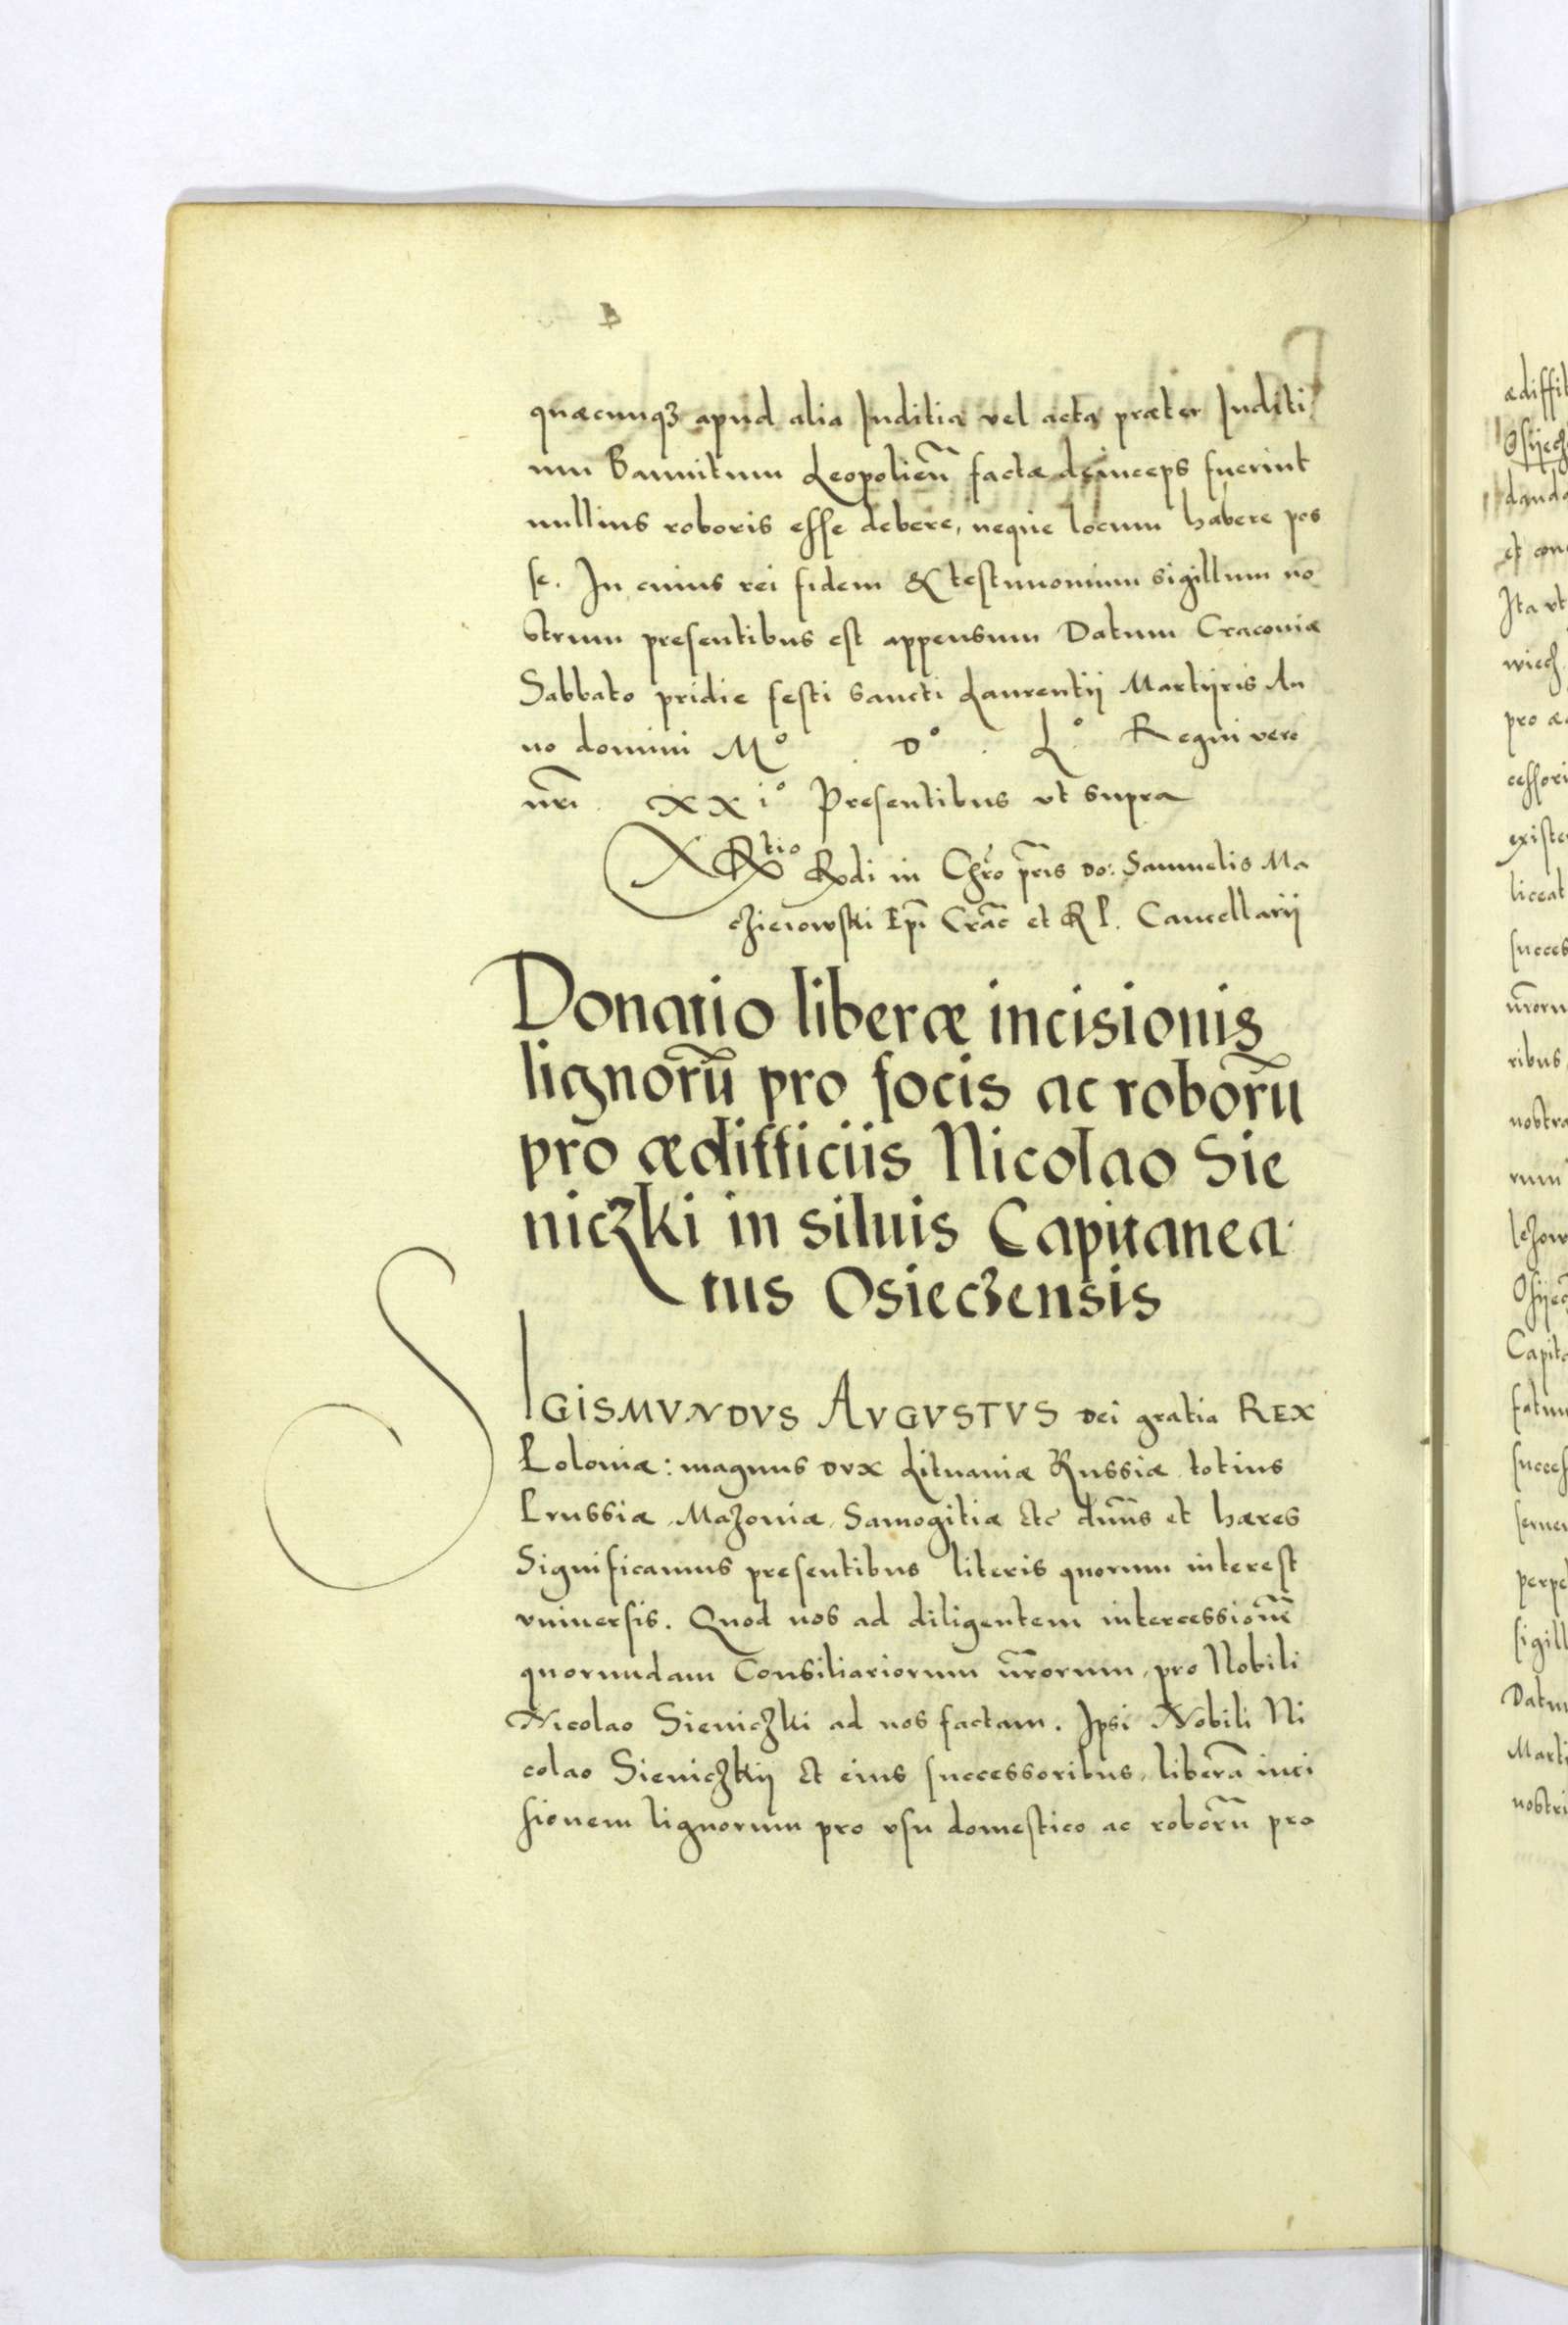 quæcunqꝫ apud alia Juditia vel acta præter Juditi
um Bannitum Leopolieñ factæ deinceps fuerint
nullius roboris esse debere, neque locum habere pos
se. In cuius rei fidem & testimonium sigillum no
strum presentibus est appensum Datum Cracoviæ
Sabbato pridie festi sancti Laurentii Martijris An
no domini Mº . Dº . Lº Regni vero
nr̃i XXiº Presentibus vt supra
Rtio Rndi in Chro pr̃is Do: Samuelis Ma
czieiowski Epĩ Crãc et R P. Cancellarij
Donatio liberæ incisionis
lignorũ pro focis ac roborũ
pro ædifficiis Nicolao Sie
niczki in siluis Capitanea
tus Osieczensis
SIGISMVNDVS AVGVSTVS Dei gratia REX
Poloniæ: magnus DVX Lituaniæ Russiæ totius
Prussiæ, Mazoniæ, Samogitiæ Etc dnñs et hæres
Significamus presentibus literis quorum interest
vniuersis. Quod nos ad diligentem intercessionẽ
quorundam Consiliariorum nr̃orum, pro Nobili
Nicolao Sieniczki ad nos factam. Ipsi Nobili Ni
colao Sieniczkij Et eius successoribus, liberã inci
sionem lignorum pro vsu domestico ac roborũ pro
ædiffi
Osijech
danda
et con
Ita vt
wiech
pro æ
cessori
existe
liceat
succes
nr̃oru
ribus
nostra
rum
Osijec
Capita
succes
perpe
sigill
Datu
Marti
nostri